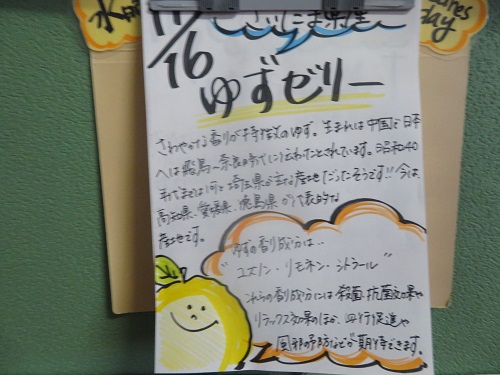 水
nes
day
11/16
さいたま
ゆずゼリー
さわやかな香りが特徴のゆず。生まれは中国で日本
へは飛鳥〜奈良時代に伝わったとされています。昭和40
年代までは何と埼玉県が主な産地だったそうです!!今は、
高知県、愛媛県、徳島県が代表的な
産地です。
ゆずの香り成分は…
"ユズノン・リモネン・シトラール"
これらの香り成分には殺菌、抗菌効果や
リラックス効果のほか、血行促進や
風邪の予防などが期待できます。